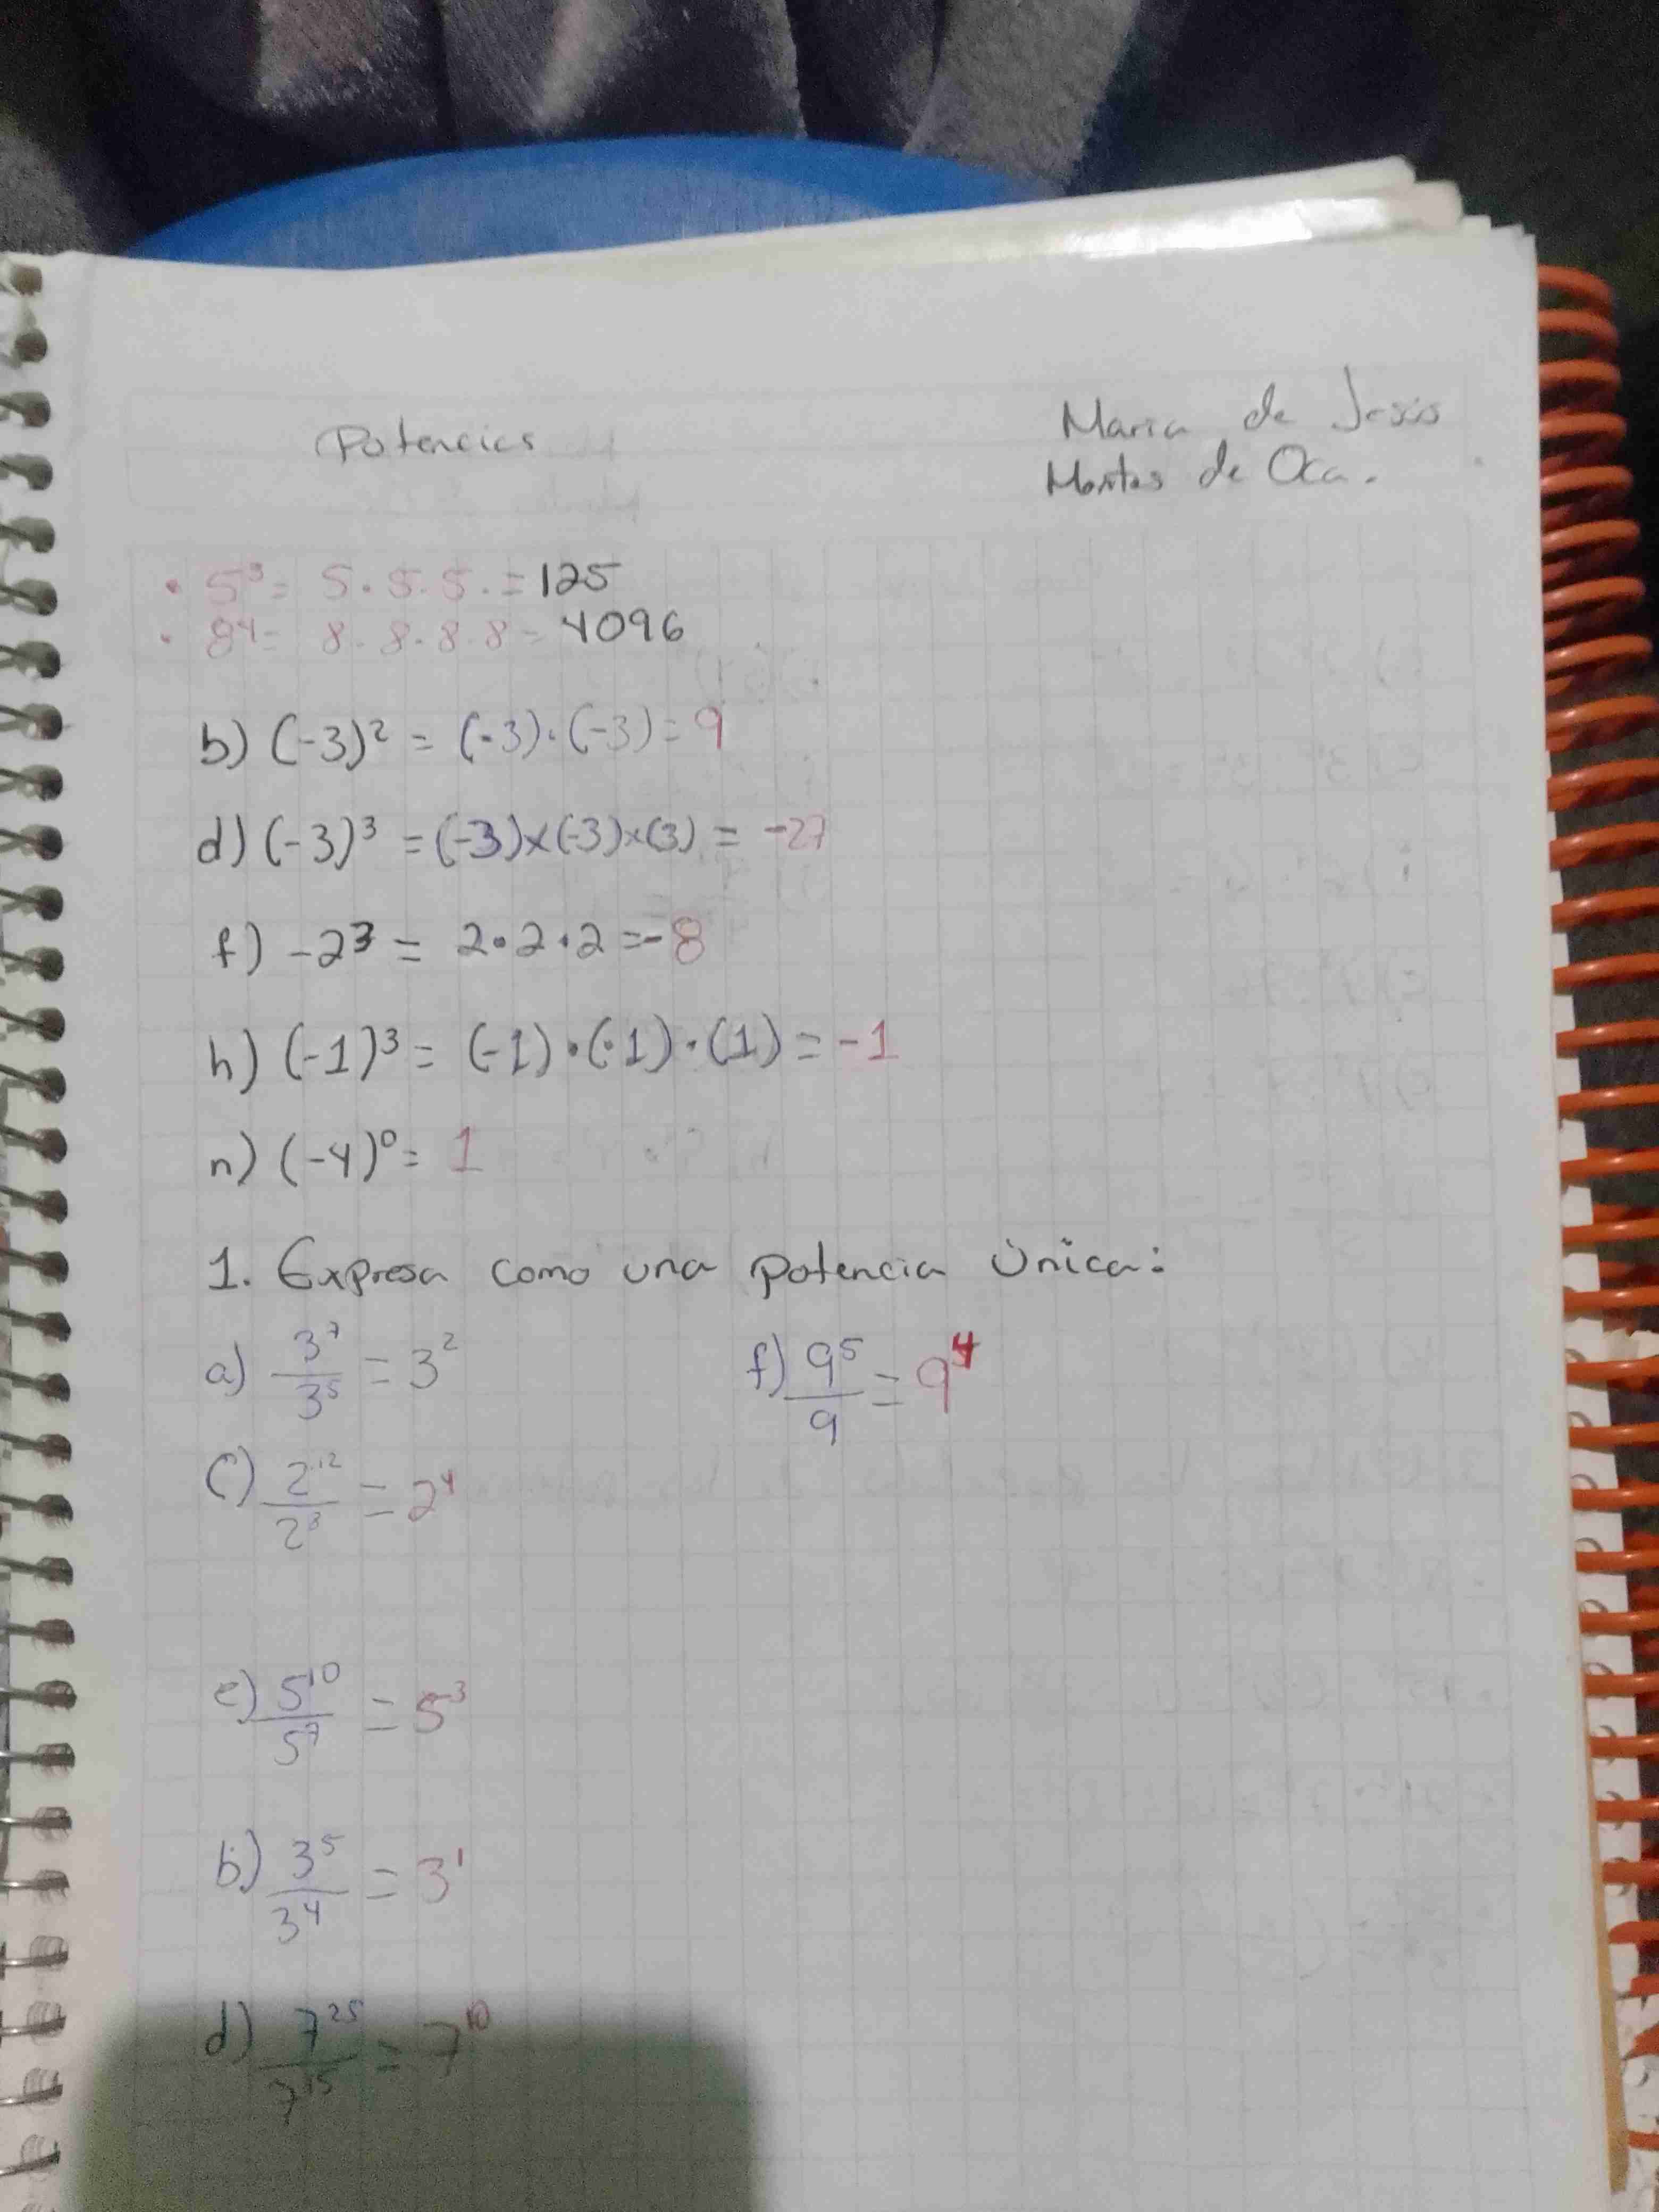 Potencias
Maria de Jesús
Montes de Oca.
• 5³= 5.5.5.=125
• 8⁴= 8.8.8.8= 4096
b) (-3)² = (-3)·(-3)= 9
d) (-3)³ = (-3)×(-3)×(3) = -27
f) -2³ = 2•2•2 =-8
h) (-1)³ = (-1)•(-1)•(1) = -1
n) (-4)⁰= 1
1. Expresa como una potencia única:
a) 3⁷/3⁵ = 3²
f) 9⁵/9 = 9⁴
c) 2¹²/2⁸ = 2⁴
e) 5¹⁰/5⁷ = 5³
b) 3⁵/3⁴ = 3¹
d) 7²⁵/7¹⁵ = 7¹⁰